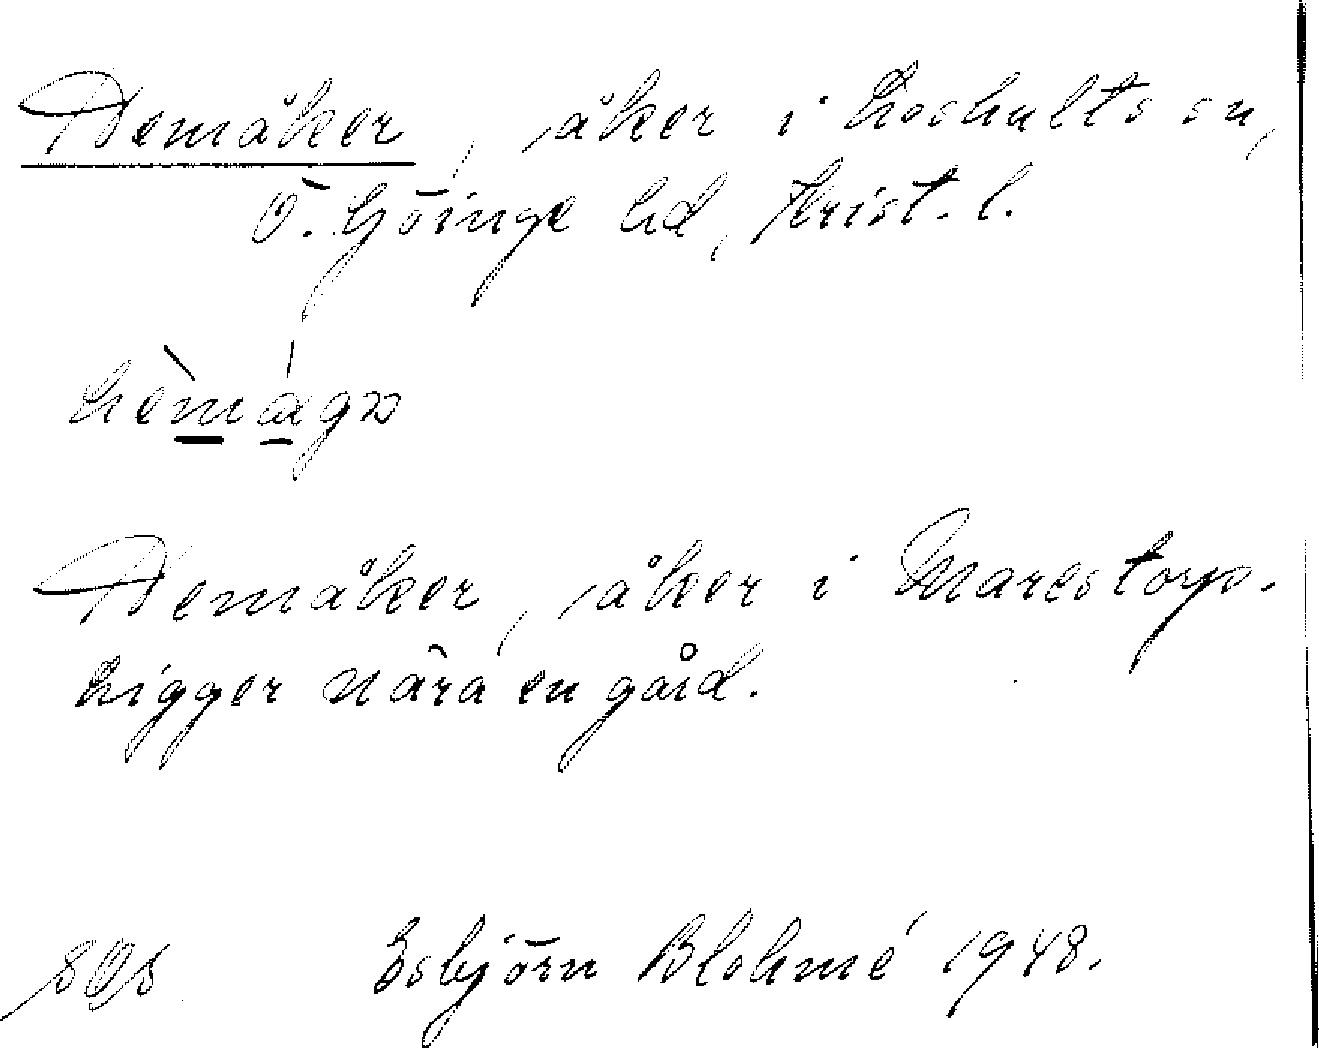 Hemåker, åker i Loshults sn,
Ö. Göinge hd, Krist. l.
hèmágɒ
Hemåker, åker i Marestorp.
Ligger nära en gård.
Esbjörn Blohmé 1948.